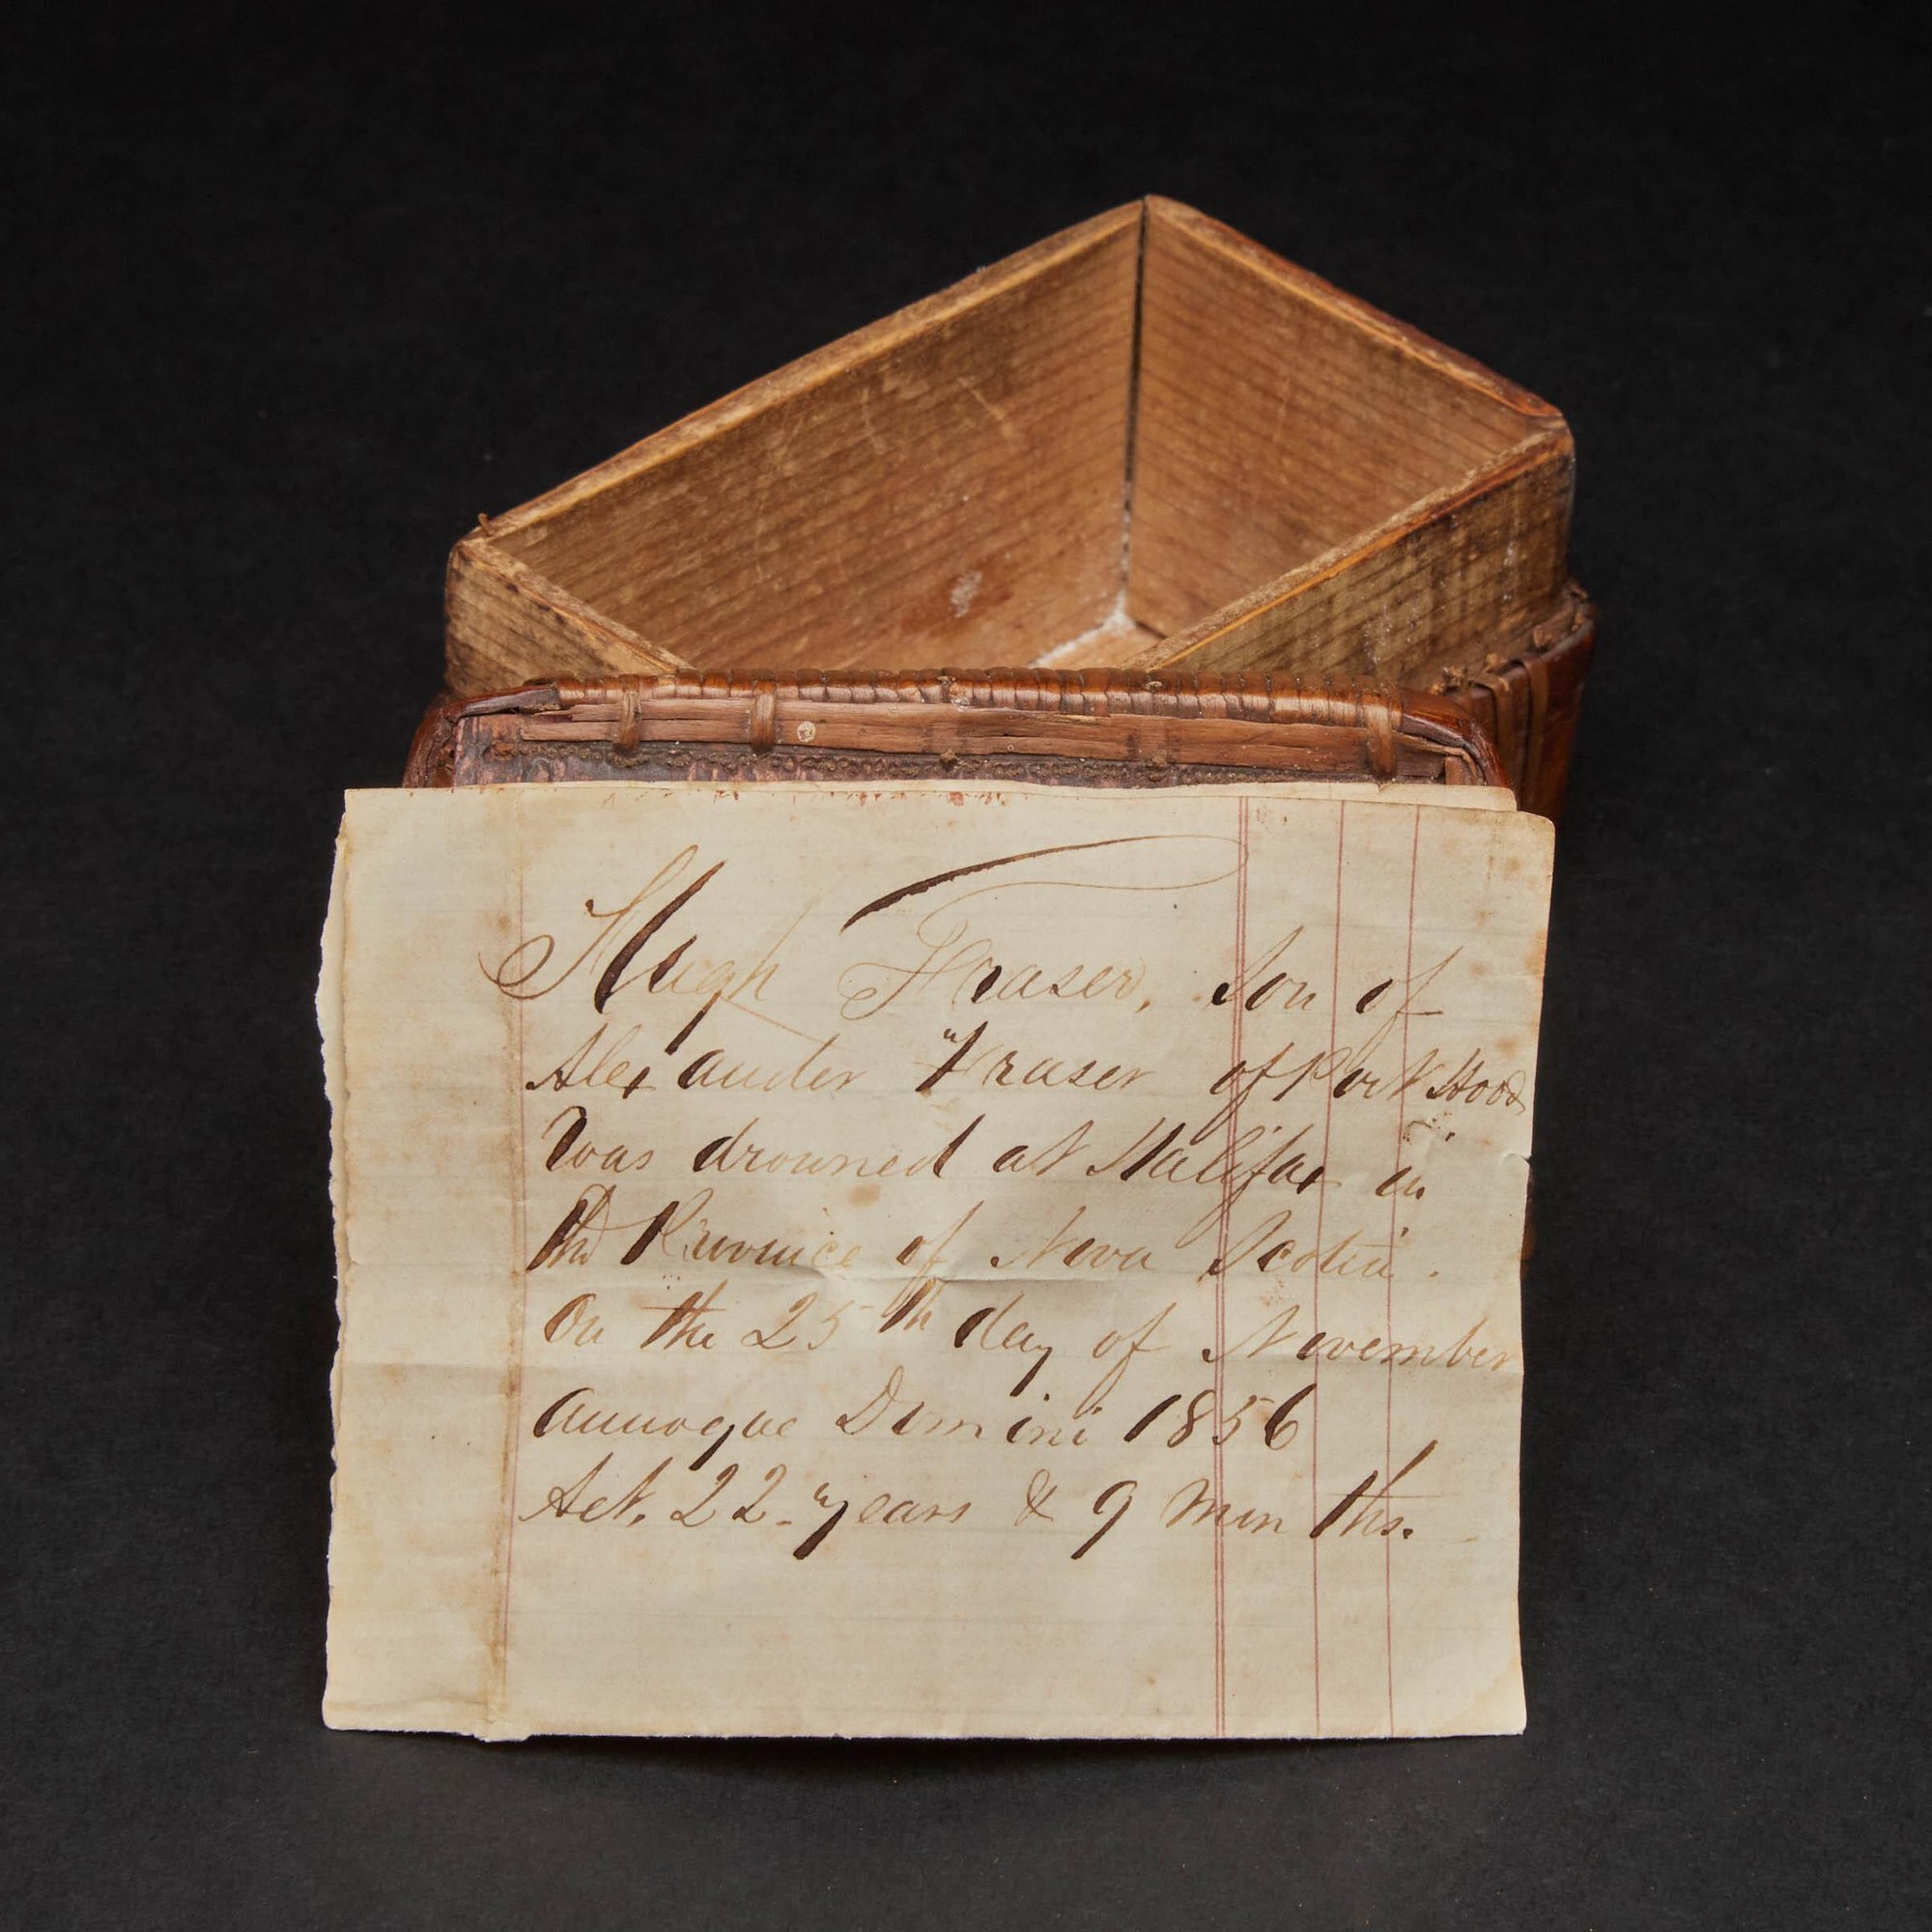 Hugh Fraser, Son of
Alexander Fraser of Port Hood
Was drowned at Halifax in
the Province of Nova Scotia.
On the 25th day of November
annoque Domini 1856
Aet. 22 years & 9 months.